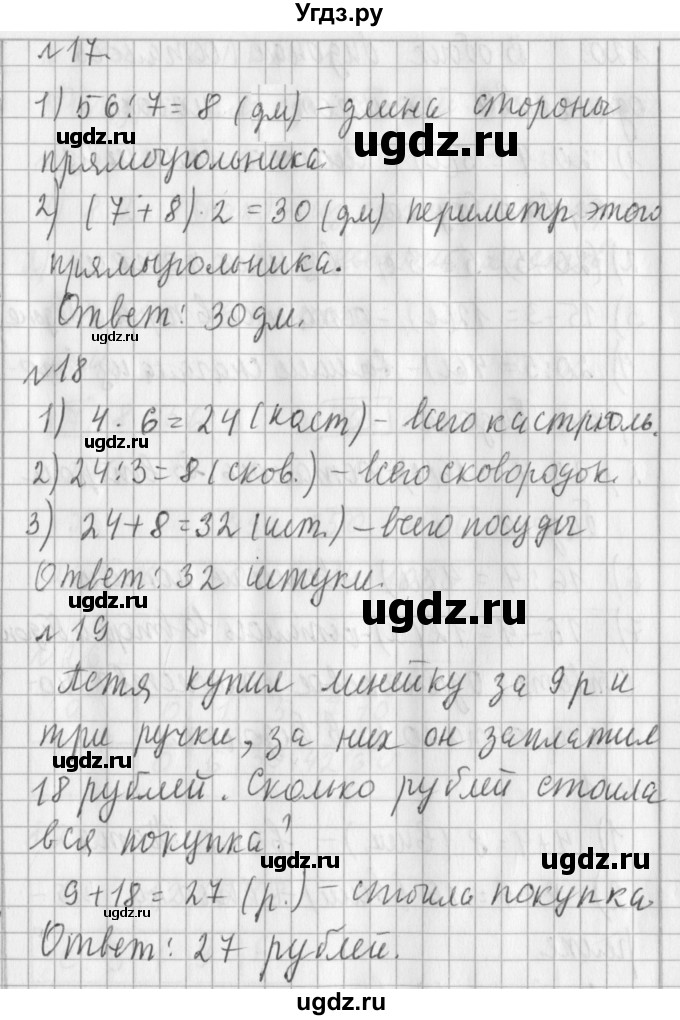 Угдз.ру
№17.
1) 56:7=8 (дм) – длина стороны
ugdz.ru
ugdz.ru
прямоугольника.
2) (7+8)·2=30 (дм) периметр этого
ugdz.ru
прямыгольника.
Ответ: 30дм.
ugdz.ru
№18
ugdz.ru
1) 4·6=24 (каст) – всего кастрюль.
ugdz.ru
2) 24:3=8 (сков.) – всего сковородок.
ugdz.ru
3) 24+8=32 (шт.) – всего посуды
Ответ: 32 штуки.
ugdz.ru
ugdz.ru
№19
Петя купил линейку за 9 р. и
ugdz.ru
три ручки, за них он заплатил
18 рублей. Сколько рублей стоила
вся покупка?
ugdz.ru
ugdz.ru
9+18=27 (р.) – стоила покупка.
ugdz.ru
Ответ: 27 рублей.
ugdz.ru
ugdz.ru